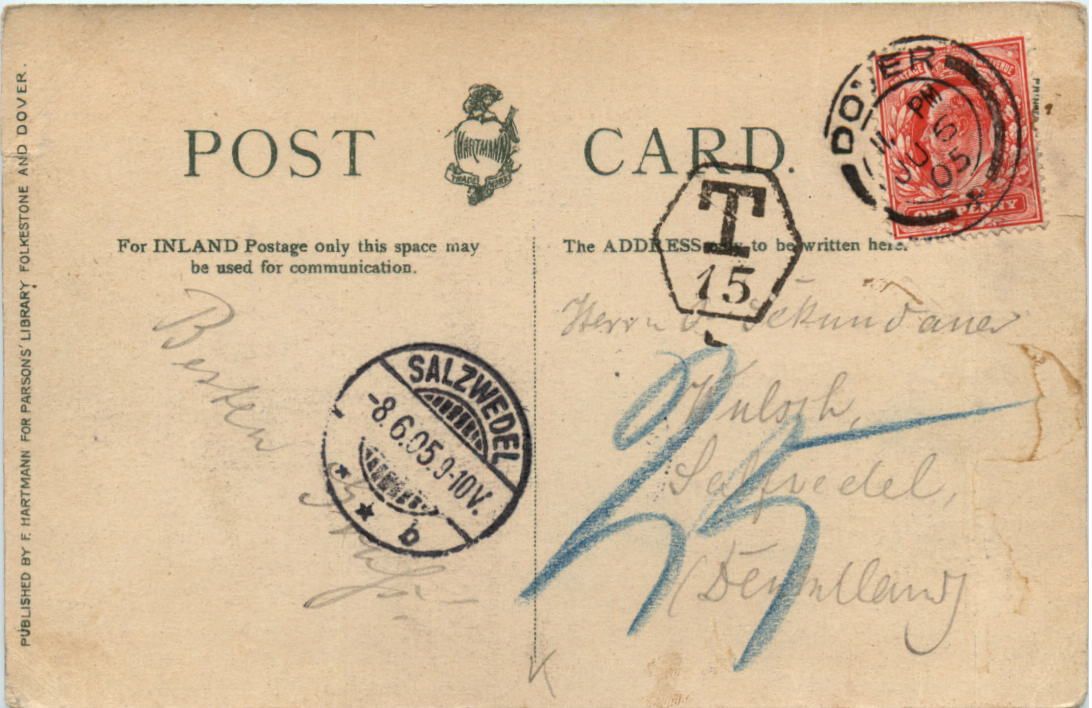 POST CARD.
HARTMANN
TRADE MARK
For INLAND Postage only this space may
be used for communication.
The ADDRESS only to be written here.
PUBLISHED BY F. HARTMANN FOR PARSONS' LIBRARY FOLKESTONE AND DOVER.
DOVER
PM
JU 6
05
POSTAGE REVENUE
ONE PENNY
T
15
SALZWEDEL
-8.6.05.9-10V.
★ ★ b
Besten
Gruß
Herrn
Sekundaner
25